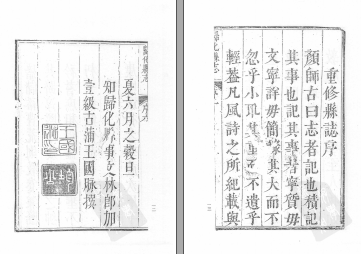 重修縣誌序
顏師古曰志者記也積記
其事也記其事者寧質毋
文寧詳毋簡寧其大而不
忽乎小乃其
不遺乎
輕蓋凡風詩之所紀載與
夏六月之穀旦
知歸化縣事文林郎加
壹級古蒲王國脉撰
王國